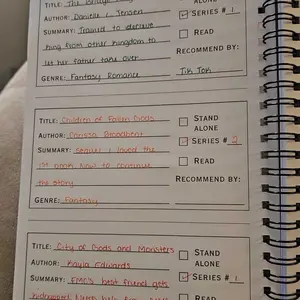 TITLE: The Bridge
ALONE
AUTHOR: Danielle L. Jensen
SERIES # 1
SUMMARY: Trained to deceive
king from other kingdom to
READ
let her father take over
RECOMMEND BY:
GENRE: Fantasy Romance
Tik Tok
TITLE: Children of Fallen Gods
STAND ALONE
AUTHOR: Carissa Broadbent
SERIES # 2
SUMMARY: Sequel I loved the
1st book. Now to continue
READ
the story
RECOMMEND BY:
GENRE: Fantasy
TITLE: City of Gods and Monsters
STAND ALONE
AUTHOR: Kayla Edwards
SERIES # 1
SUMMARY: FMC's best friend gets
kidnapped. Needs help from
READ